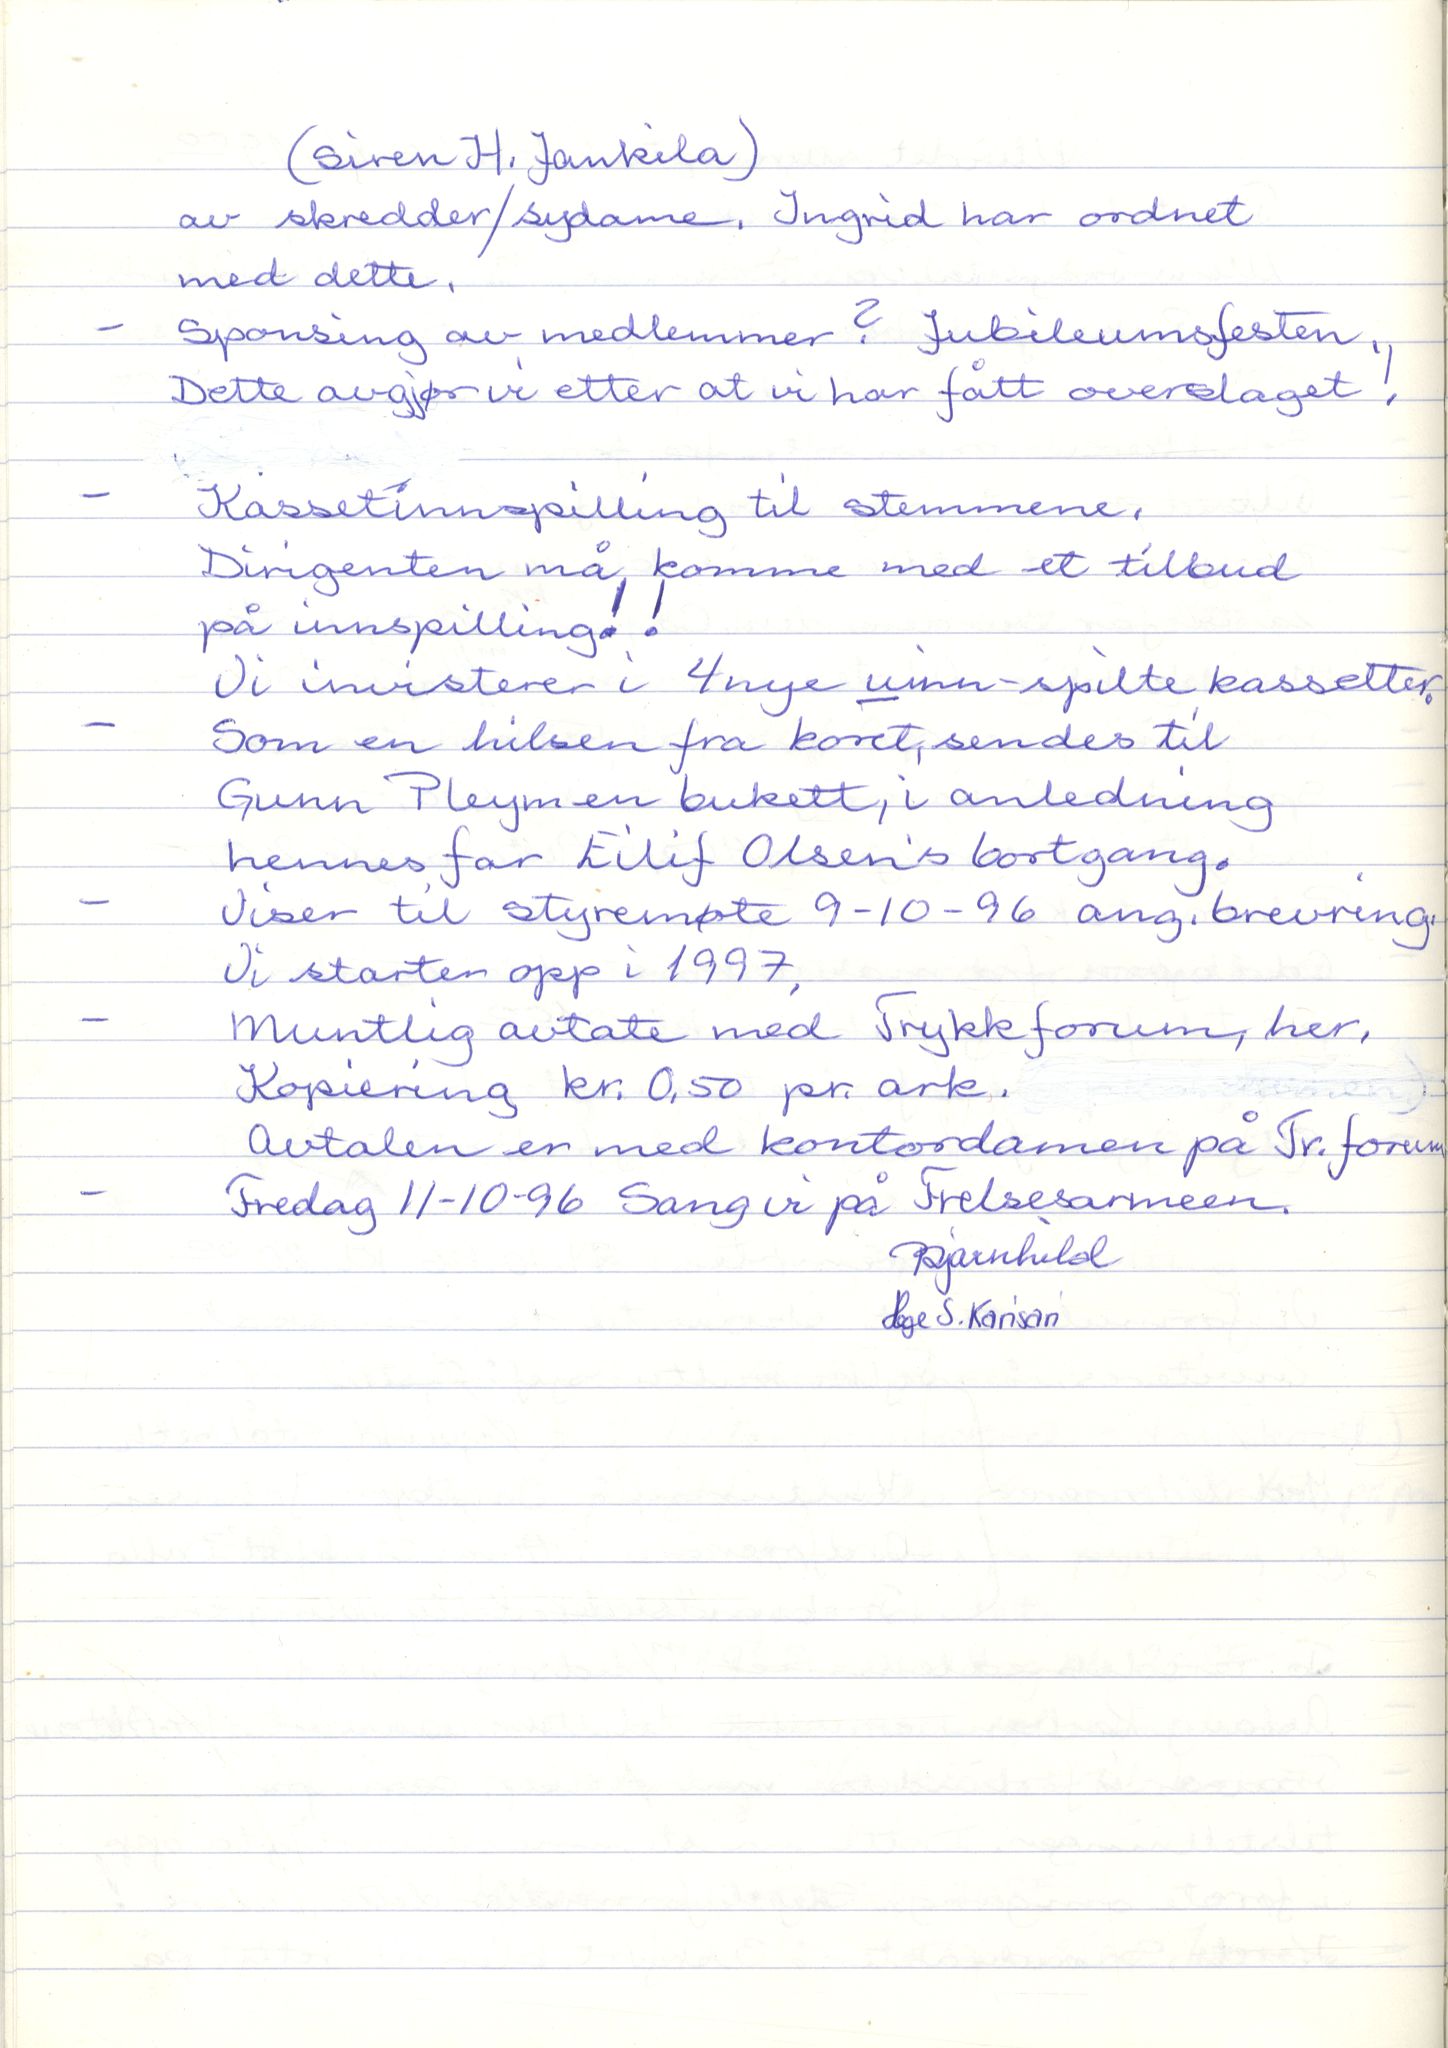 (Siren H. Jankila)
av skredder/sydame. Ingrid har ordnet
med dette.
- Sponsing av medlemmer? Jubileumsfesten.
Dette avgjør vi etter at vi har fått overslaget!!
- Kassetinnspilling til stemmene.
Dirigenten må komme med et tilbud
på innspilling!!
Vi invisterer i 4 nye uinn-spilte kassetter.
- Som en hilsen fra koret, sendes til
Gunn Pleym en bukett, i anledning
hennes far Eilif Olsen's bortgang.
- Viser til styremøte 9-10-96 ang. brevring.
Vi starter opp i 1997.
- Muntlig avtate med Trykkforum, her.
Kopiering kr. 0,50 pr. ark.
Avtalen er med kontordamen på Tr. forum
- Fredag 11-10-96 Sang vi på Frelsesarmeen.
Bjarnhild
S. Karisari